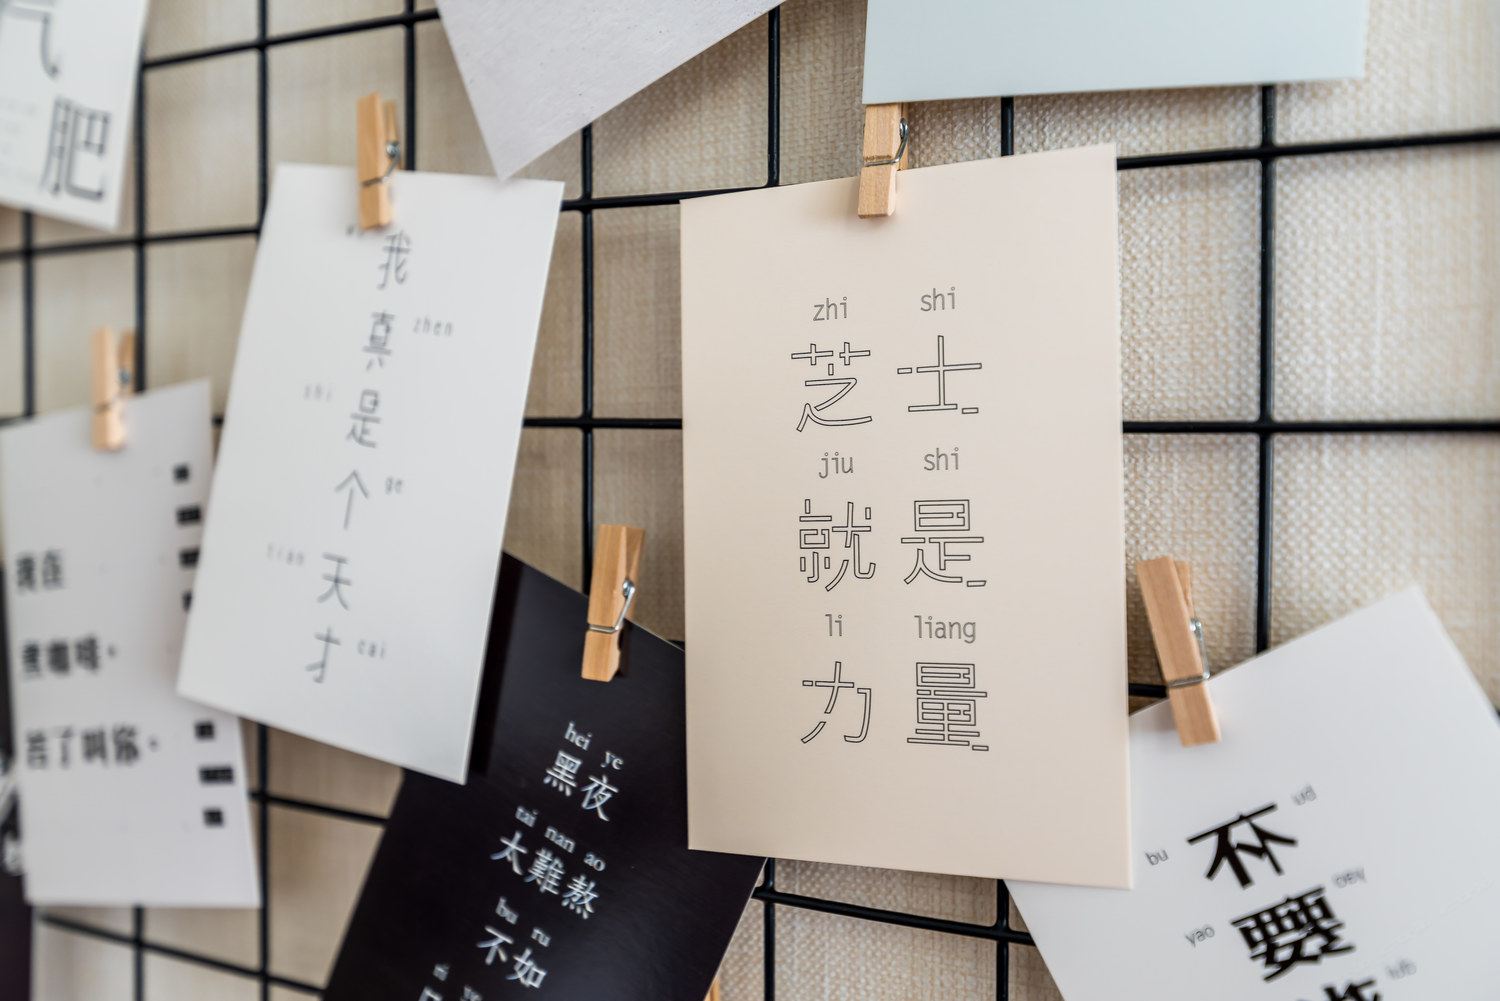 气
肥
我
真 zhen
shi 是
个 ge
tian 天
才 cai
我在
煮咖啡。
苦了叫你。
zhi shi
芝士
jiu shi
就是
li liang
力量
hei ye
黑夜
tai nan ao
太難熬
bu ru
不如
bu 不
yao 要